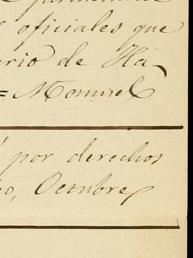 oficiales que
erio de Ha-
= Manuel
por derechos
o, Octubre